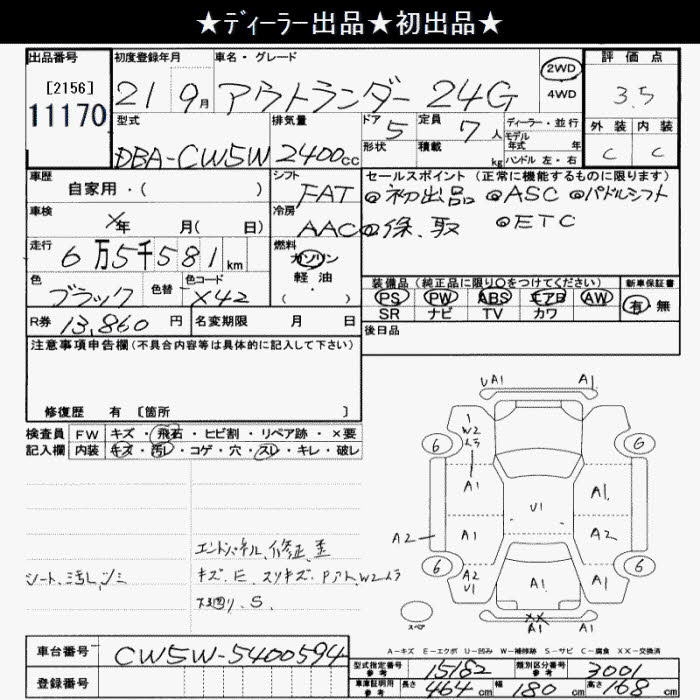 ★ディーラー出品★初出品★
出品番号 初度登録年月 車名・グレード 2WD 評価点
[2156] 11170 21 9月 アウトランダー 24G 4WD 3.5
型式 排気量 ドア 5 定員 7人 ディーラー・並行 外装 内装
DBA-CW5W 2400cc 形状 積載 kg モデル年式 年式 ハンドル 左・右 C C
車歴 シフト セールスポイント (正常に機能するものに限ります)
自家用・( ) FAT ◎初出品 ◎ASC ◎パドルシフト
車検 ×年 月(日) 冷房 AAC ◎保、取 ◎ETC
走行 6万5千581km 燃料 ガソリン
色 色替 色コード 軽油 装備品 (純正品に限り○をつけてください) 新車保証書
ブラック X42 ・( ) PS PW ABS エアB AW 有 無
R券 13,860円 名変期限 月 日 SR ナビ TV カワ
後日品
注意事項申告欄 (不具合内容等は具体的に記入して下さい)
修復歴 有 [箇所 ]
検査員 FW キズ・飛石・ヒビ割・リペア跡・×要
記入欄 内装 キズ・汚レ・コゲ・穴・スレ・キレ・破レ
UA1 A1
1 W2
6 6
A1 A1
U1
A2 A1 A2
6 A2 U1 A1 A1 6
スペア XX A1 A1
エンドパネル、修正、歪
シート、汚レ、シミ キズ、E、スリキズ、
S.
A-キズ E-エクボ U-凹み W-補修跡 S-サビ C-腐食 XX-交換済
車台番号 CW5W-5400594
登録番号
型式指定番号 参考 15182 類別区分番号 参考 3001
車庫証明用 参考 長さ 464cm 幅 180cm 高さ 168cm